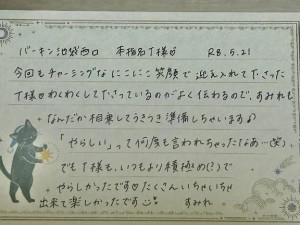 バーキン池袋西口 本指名T様♡ R8.5.21
今回もチャーミングなにこにこ笑顔で迎え入れて下さった
T様♡わくわくして下さっているのがよく伝わるので、すみれも
なんだか相乗してうきうき準備しちゃいます♪
「やらしい」って何度も言われちゃったなぁ…(笑)
でもT様も、いつもより積極め(?)で
やらしかったです♡たくさんいちゃいちゃ
出来て楽しかったです すみれ